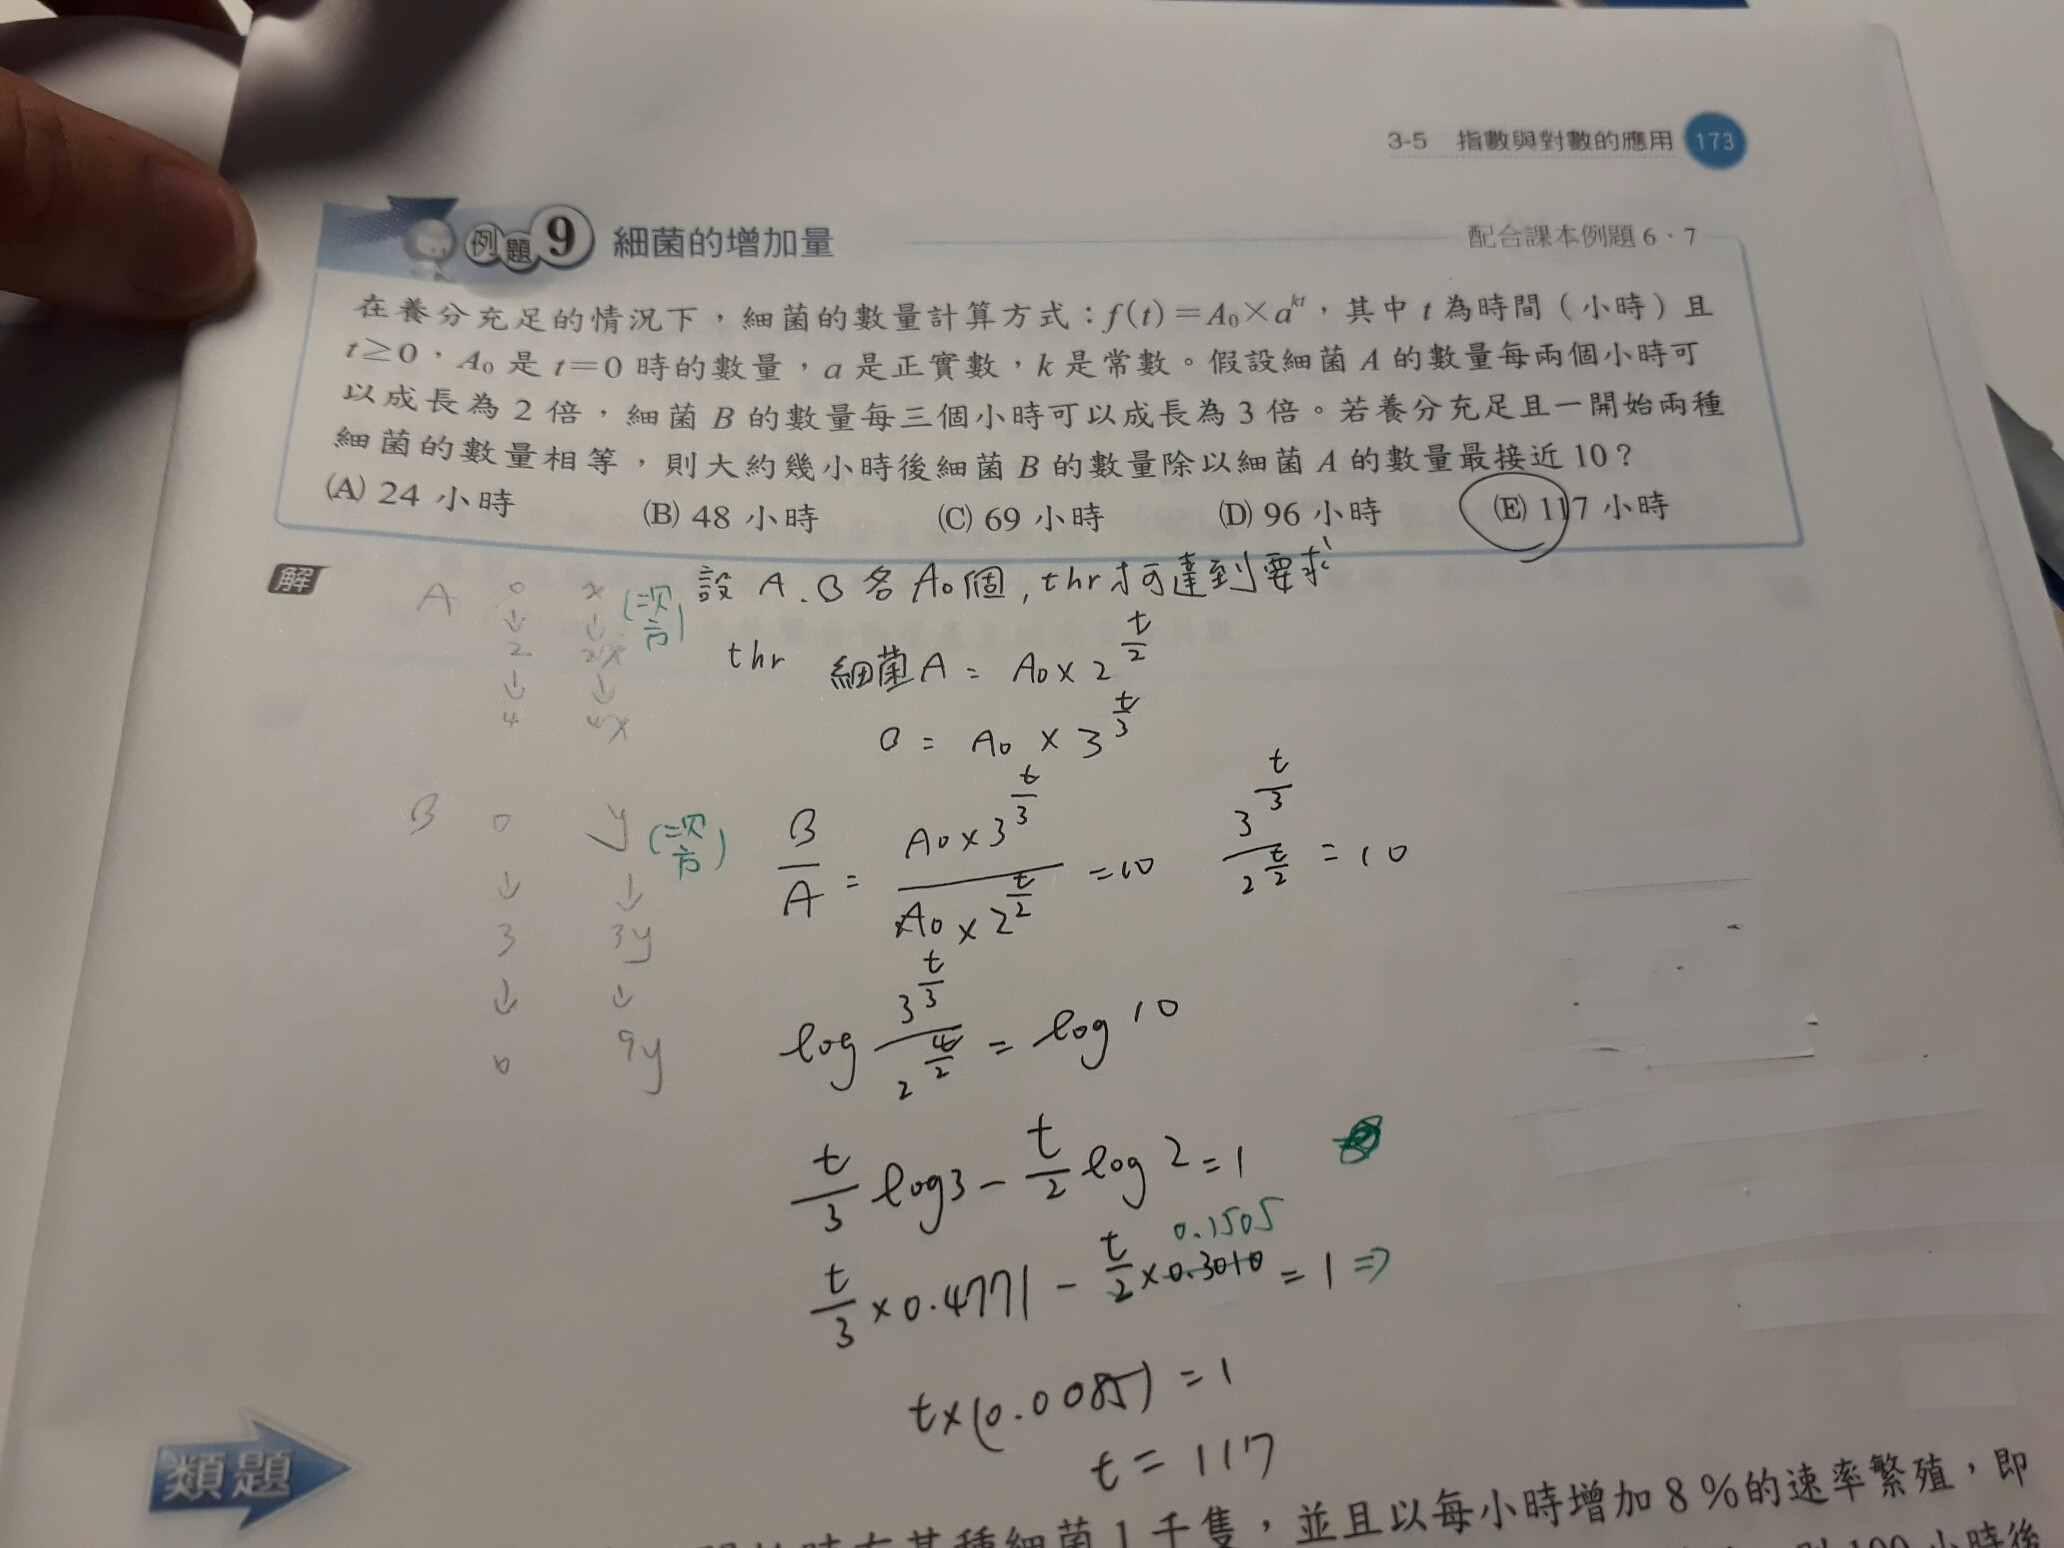 3-5 指數與對數的應用 173
例題 9 細菌的增加量 配合課本例題 6、7
在養分充足的情況下，細菌的數量計算方式：f(t)=A₀×a^{kt}，其中 t 為時間（小時）且
t≥0，A₀ 是 t=0 時的數量，a 是正實數，k 是常數。假設細菌 A 的數量每兩個小時可
以成長為 2 倍，細菌 B 的數量每三個小時可以成長為 3 倍。若養分充足且一開始兩種
細菌的數量相等，則大約幾小時後細菌 B 的數量除以細菌 A 的數量最接近 10？
(A) 24 小時 (B) 48 小時 (C) 69 小時 (D) 96 小時 (E) 117 小時
解
A 0 x (次方)
↓ ↓
2 2x
↓ ↓
4 4x
設 A、B 各 A₀個, t hr 才可達到要求
t hr 細菌A = A₀ × 2^{t/2}
B = A₀ × 3^{t/3}
B 0 y (次方)
↓ ↓
3 3y
↓ ↓
9y
B/A = (A₀ × 3^{t/3})/(A₀ × 2^{t/2}) = 10 3^{t/3}/2^{t/2} = 10
log 3^{t/3}/2^{t/2} = log 10
t/3 log3 − t/2 log 2 = 1
0.1505
t/3 × 0.4771 − t/2 × 0.3010 = 1 ⇒
t×(0.0085) = 1
t = 117
類題
細菌 1 千隻，並且以每小時增加 8 %的速率繁殖，即
100 小時後